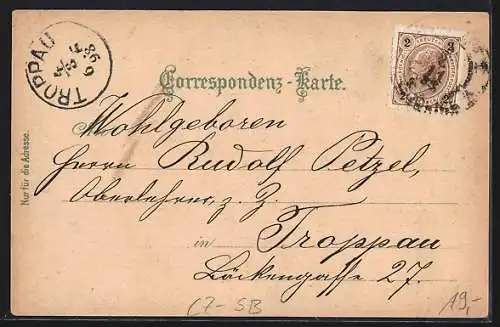 TROPPAU
98
2 3
Correspondenz-Karte.
Nur für die Adresse.
Wohlgeboren
Herrn Rudolf Petzel,
Oberlehrer, z. Z.
in Troppau
Böckengasse 27.
CZ-SB
19,-